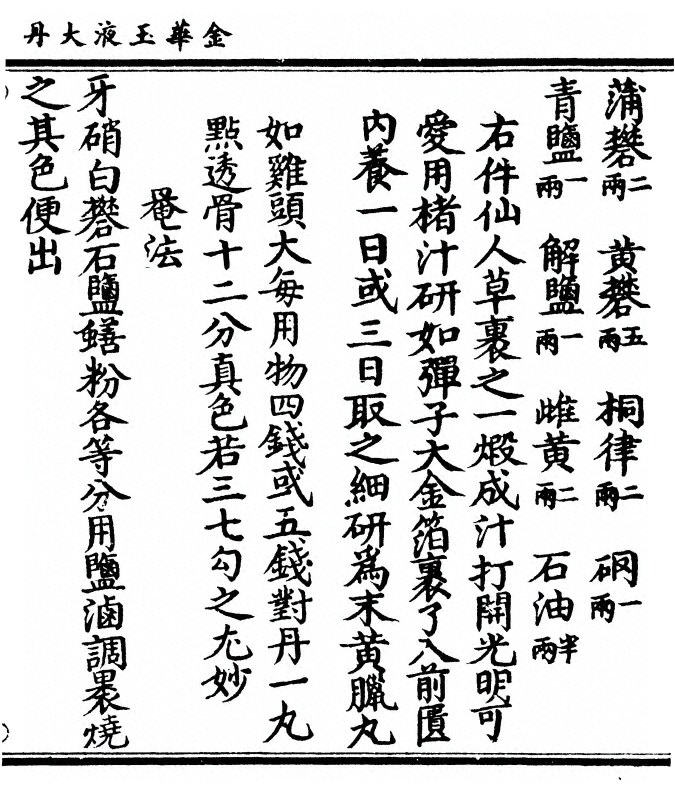 金華玉液大丹
蒲礬二兩 黄礬五兩 桐律二兩 硇一兩
青鹽一兩 解鹽一兩 雌黄二兩 石油半兩
右件仙人草裹之一煅成汁打開光明可
愛用楮汁研如彈子大金箔裹了入前匱
内養一日或三日取之細研爲末黄臘丸
如雞頭大每用物四錢或五錢對丹一丸
點透骨十二分真色若三七勾之尤妙
罨法
牙硝白礬石鹽蟮粉各等分用鹽滷調裹燒
之其色便出